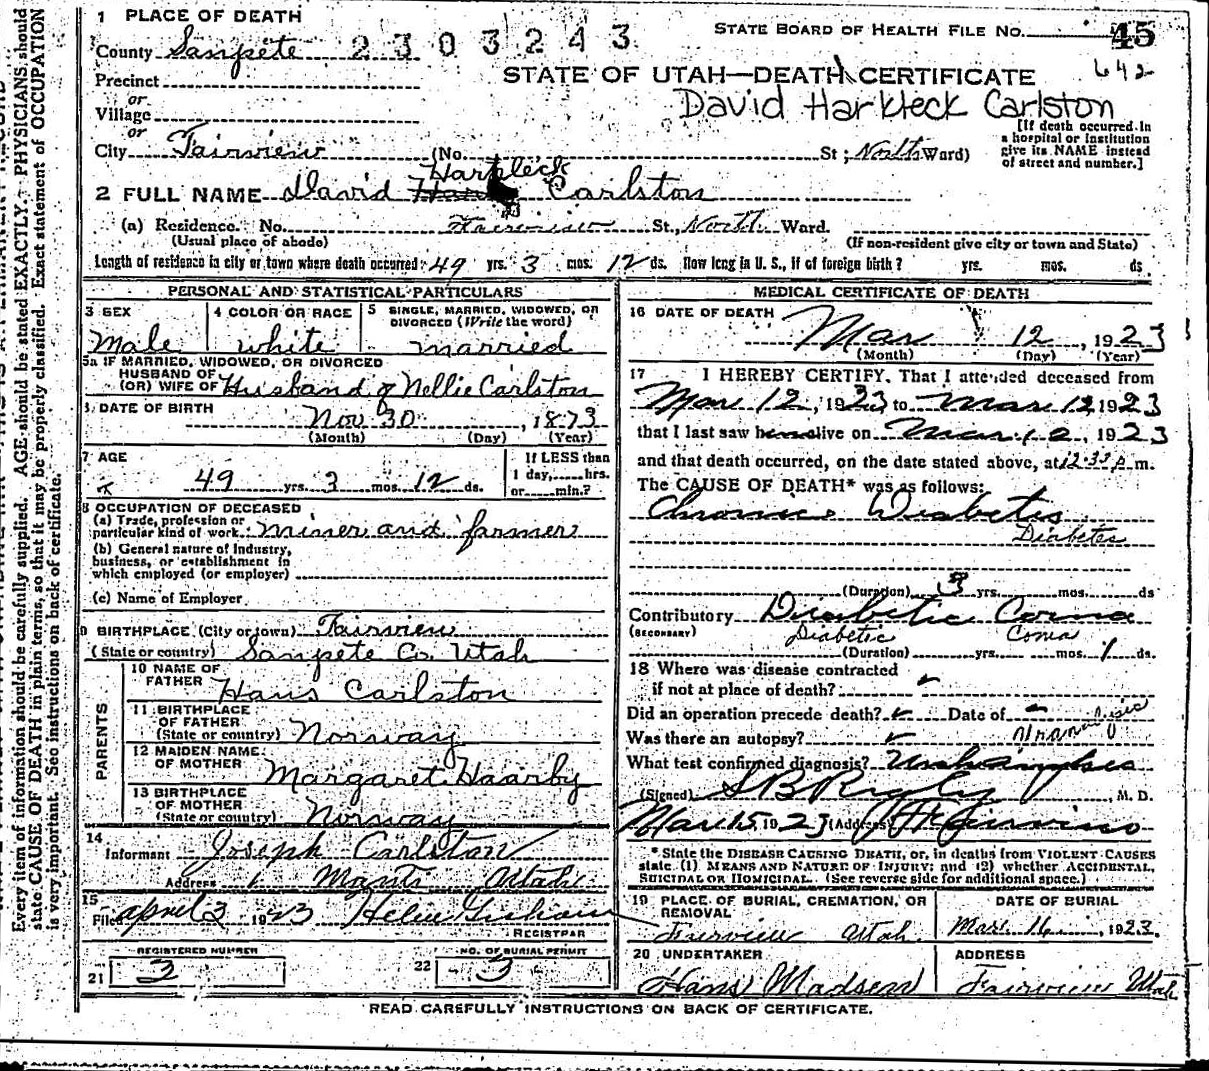 1 PLACE OF DEATH
STATE BOARD OF HEALTH FILE No. 45
County Sanpete 2303243
642
STATE OF UTAH—DEATH CERTIFICATE
Precinct
David Harkleck Carlston
or
Village
or
City Fairview (No. St; North Ward)
[If death occurred in
a hospital or institution
give its NAME instead
of street and number.]
Harkleck
2 FULL NAME David Carlston
(a) Residence. No. Fairview St., North Ward.
(Usual place of abode)
(If non-resident give city or town and State)
Length of residence in city or town where death occurred 49 yrs. 3 mos. 12 ds. How long in U. S., if of foreign birth? yrs. mos. ds
PERSONAL AND STATISTICAL PARTICULARS
3 SEX
Male
4 COLOR OR RACE
white
5 SINGLE, MARRIED, WIDOWED, OR
DIVORCED (Write the word)
married
5a IF MARRIED, WIDOWED, OR DIVORCED
HUSBAND OF
(OR) WIFE OF Husband of Nellie Carlston
DATE OF BIRTH
Nov 30, 1873
(Month) (Day) (Year)
7 AGE
49 yrs. 3 mos. 12 ds.
If LESS than
1 day, hrs.
or min.?
8 OCCUPATION OF DECEASED
(a) Trade, profession or
particular kind of work miner and farmer
(b) General nature of Industry,
business, or establishment in
which employed (or employer)
(c) Name of Employer
9 BIRTHPLACE (City or town) Fairview
(State or country) Sanpete Co. Utah
PARENTS
10 NAME OF
FATHER
Hans Carlston
11 BIRTHPLACE
OF FATHER
(State or country) Norway
12 MAIDEN NAME
OF MOTHER
Margaret Haarby
13 BIRTHPLACE
OF MOTHER
(State or country) Norway
14
Informant Joseph Carlston
Address Manti Utah
15
Filed April 3 1923
REGISTRAR
REGISTERED NUMBER
21 3
NO. OF BURIAL PERMIT
22 3
MEDICAL CERTIFICATE OF DEATH
16 DATE OF DEATH
Mar 12, 1923
(Month) (Day) (Year)
17 I HEREBY CERTIFY, That I attended deceased from
Mar 12, 1923 to Mar 12 1923
that I last saw alive on Mar 12, 1923
and that death occurred, on the date stated above, at p.m.
The CAUSE OF DEATH* was as follows:
Chronic Diabetis
Diabetes
(Duration) 3 yrs. mos. ds
Contributory Diabetic Coma
(SECONDARY) Diabetic Coma
(Duration) yrs. mos. 1 ds.
18 Where was disease contracted
if not at place of death?
Did an operation precede death? Date of
Was there an autopsy?
What test confirmed diagnosis?
(Signed) S B Rigby, M. D.
Mar 15, 1923 (Address) Fairview
* State the DISEASE CAUSING DEATH, or, in deaths from VIOLENT CAUSES
state (1) MEANS AND NATURE OF INJURY; and (2) whether ACCIDENTAL,
SUICIDAL OR HOMICIDAL. (See reverse side for additional space.)
19 PLACE OF BURIAL, CREMATION, OR
REMOVAL
Fairview Utah
DATE OF BURIAL
Mar. 16, 1923.
20 UNDERTAKER
Hans Madsen
ADDRESS
Fairview Utah
READ CAREFULLY INSTRUCTIONS ON BACK OF CERTIFICATE.
Every item of information should be carefully supplied. AGE should be stated EXACTLY. PHYSICIANS should
state CAUSE OF DEATH in plain terms, so that it may be properly classified. Exact statement of OCCUPATION
is very important. See instructions on back of certificate.